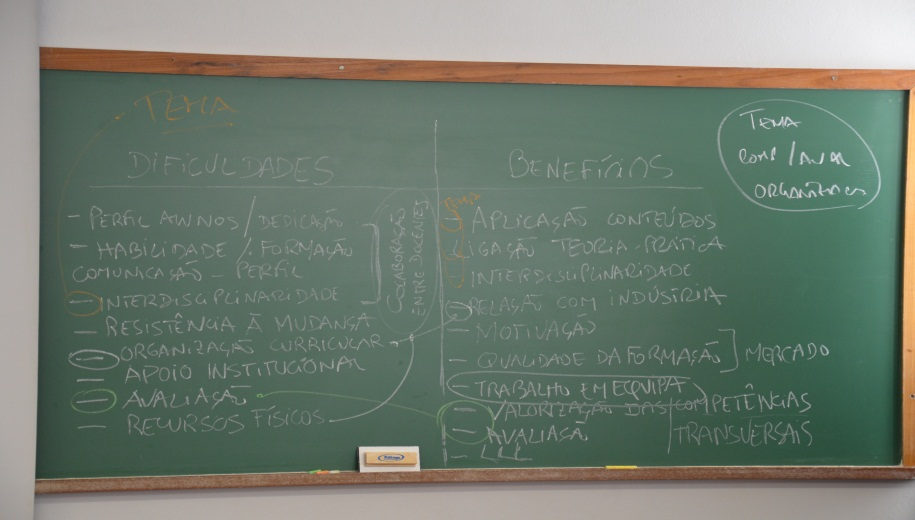 TEMA
DIFICULDADES
- PERFIL ALUNOS / DEDICAÇÃO
- HABILIDADE / FORMAÇÃO
COMUNICAÇÃO - PERFIL
- INTERDISCIPLINARIDADE
- RESISTÊNCIA À MUDANÇA
- ORGANIZAÇÃO CURRICULAR
- APOIO INSTITUCIONAL
- AVALIAÇÃO
- RECURSOS FÍSICOS
COLABORAÇÃO
ENTRE DOCENTES
BENEFÍCIOS
TEMA
- APLICAÇÃO CONTEÚDOS
LIGAÇÃO TEORIA-PRÁTICA
- INTERDISCIPLINARIDADE
- RELAÇÃO COM INDÚSTRIA
- MOTIVAÇÃO
- QUALIDADE DA FORMAÇÃO] MERCADO
- TRABALHO EM EQUIPA
- VALORIZAÇÃO DAS COMPETÊNCIAS
TRANSVERSAIS
- AVALIAÇÃ
- LLL
TEMA